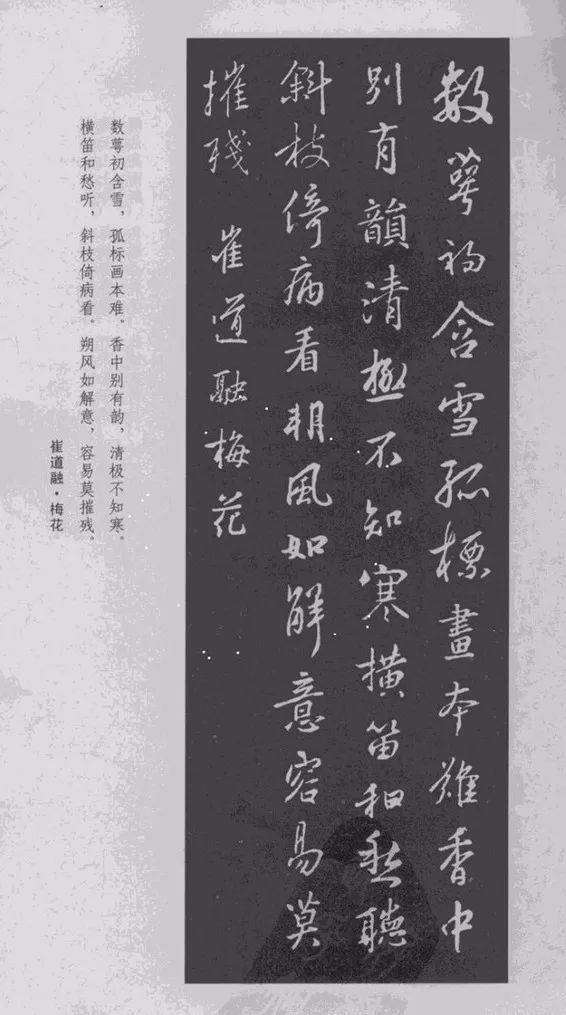 数萼初含雪孤標畫本難香中
别有韻清極不知寒横笛和愁聽
斜枝倚病看朔風如解意容易莫
摧殘 崔道融梅花
数萼初含雪，孤标画本难。香中别有韵，清极不知寒。
横笛和愁听，斜枝倚病看。朔风如解意，容易莫摧残。
崔道融·梅花